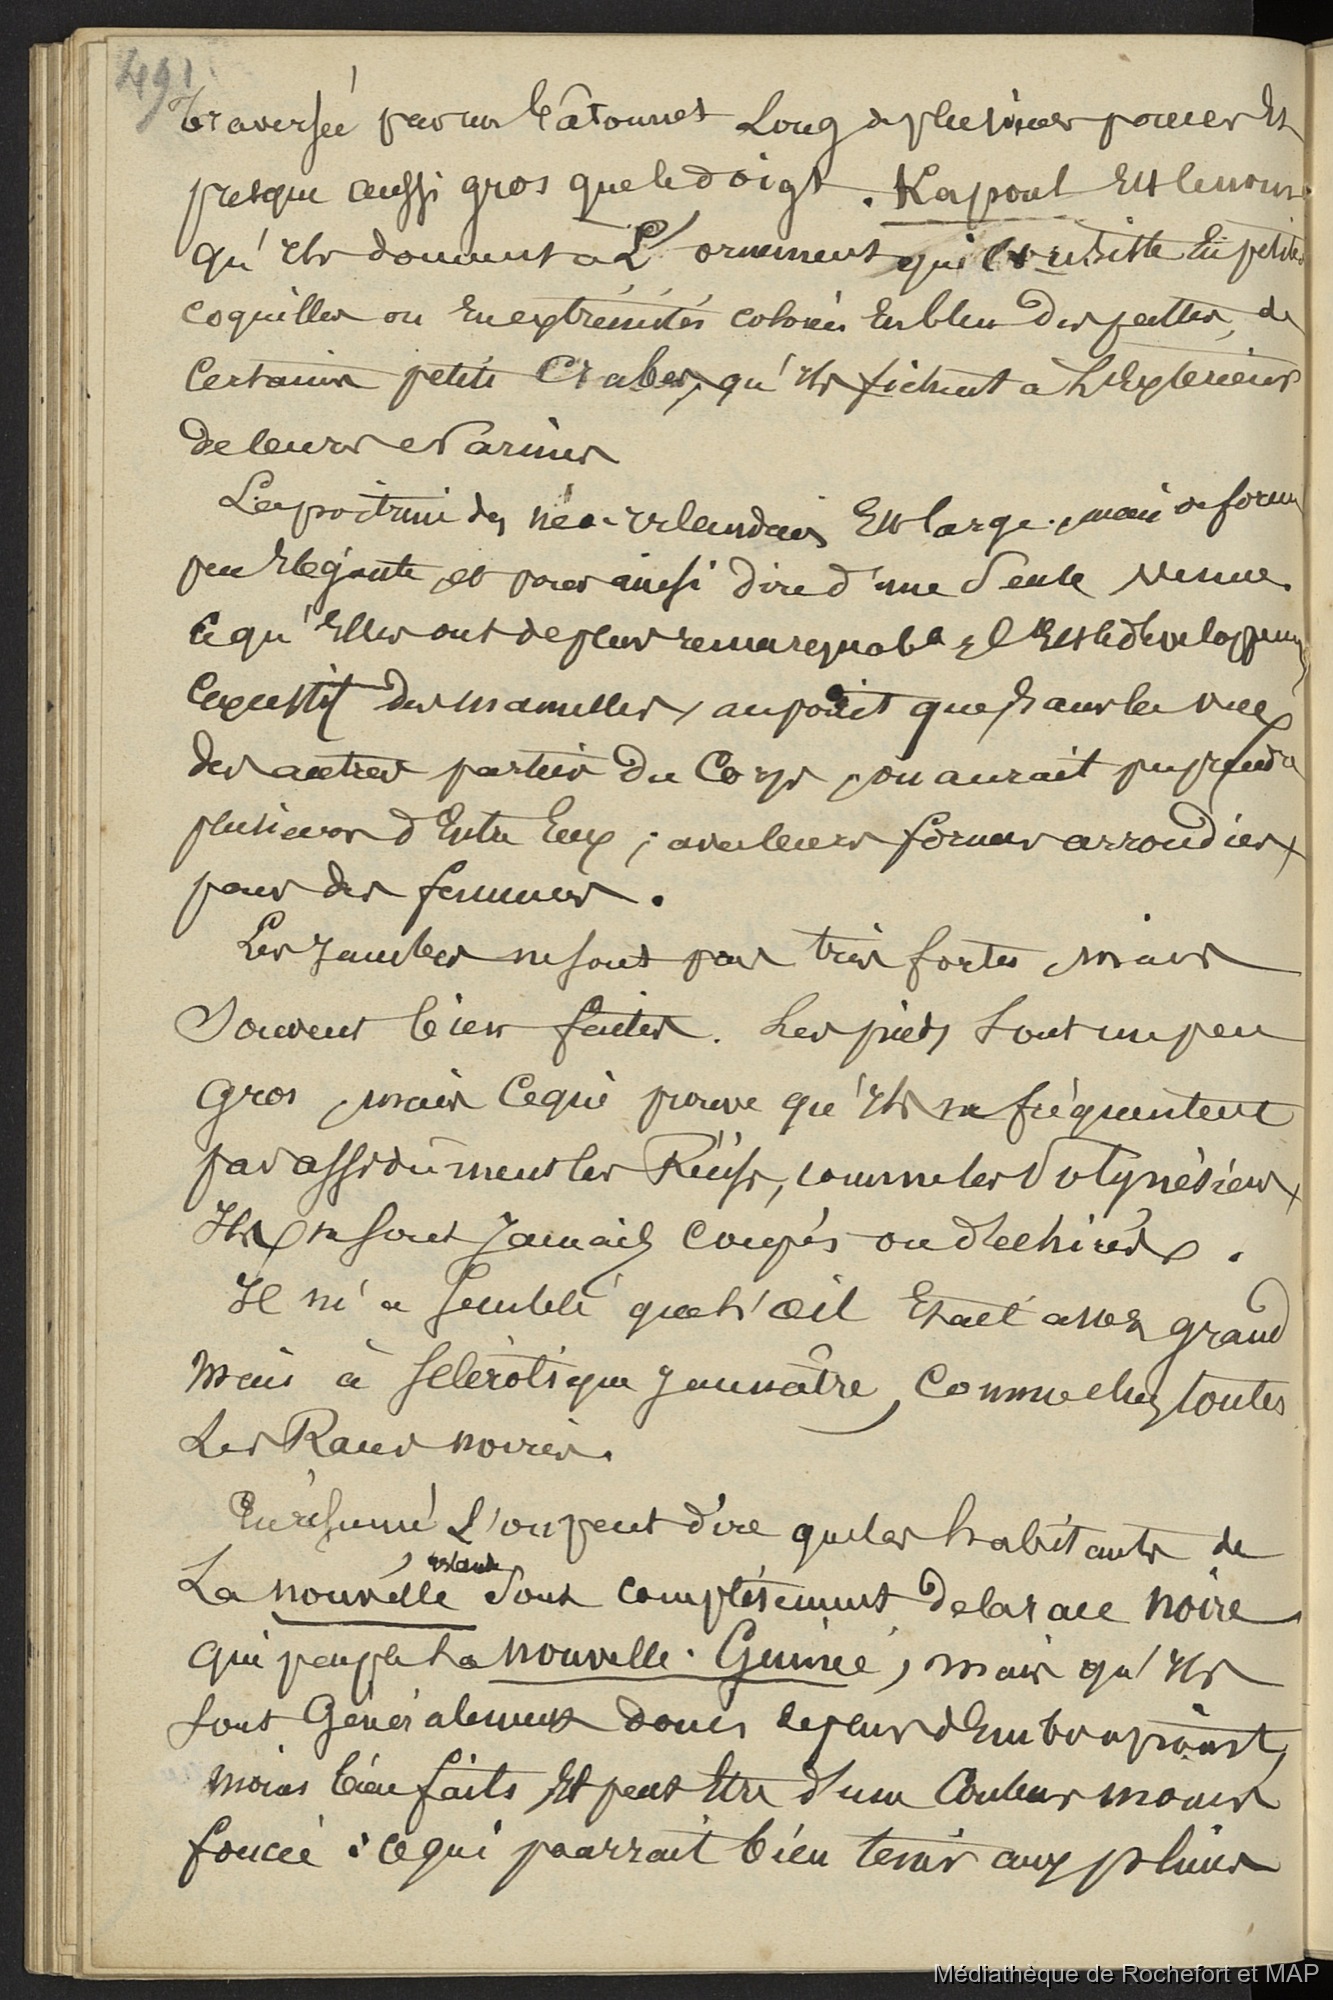 491
traversée par un bâtonnet Long de plusieurs pouces Et
presque aussi gros que le doigt. Kapoul Est le nom
qu'ils donnent à L'ornement qui consiste En petites
coquilles ou En extrémités colorées En bleu des pattes, de
Certains petits Crabes, qu'ils fichent à L'Exterieur
de leurs Narines
La poitrine des néo-irlandais Est large, mais de forme
peu Elégante, et pour ainsi dire d'une Seule venue.
Ce qu'Elles ont de plus remarquable Est le développement
Excessif des mamelles, au point que sans la vue
des autres parties du Corps, on aurait pu prendre
plusieurs d'Entre Eux, avec leurs formes arrondies,
pour des femmes.
Les Jambes ne sont pas très fortes, mais
Souvent bien faites. Les pieds Sont un peu
Gros, mais Ce qui prouve qu'ils ne fréquentent
pas assidûment les Récifs, comme les Polynésiens
Ils ne sont Jamais coupés ou déchirés.
Il m'a Semblé que L'œil Etait assez grand
Mais à Sclérotique Jaunâtre, Comme chez toutes
Les Races noires.
En résumé L'on peut dire que les habitants de
La nouvelle irlande Sont complétement de la race noire
qui peuple La nouvelle-Guinée, mais qu'ils
Sont Généralement doués de plus d'Embonpoint,
moins bien faits Et peut Etre d'une Couleur moins
foncée : ce qui pourrait bien tenir aux pluies
Médiathèque de Rochefort et MAP